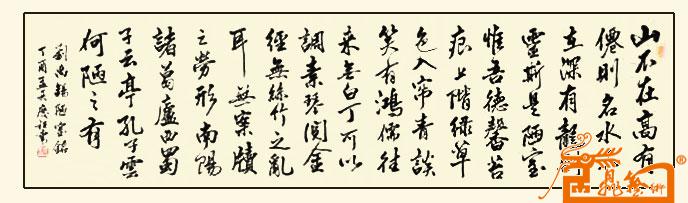 山不在高有
僊則名水
在深有龍
靈斯是陋室
惟吾德馨苔
痕上階綠草
色入帘青談
笑有鴻儒往
来無白丁可以
調素琴閱金
經無絲竹之亂
耳無案牘
之勞形南陽
諸葛廬西蜀
子云亭孔子雲
何陋之有
劉禹錫陋室銘
丁酉孟